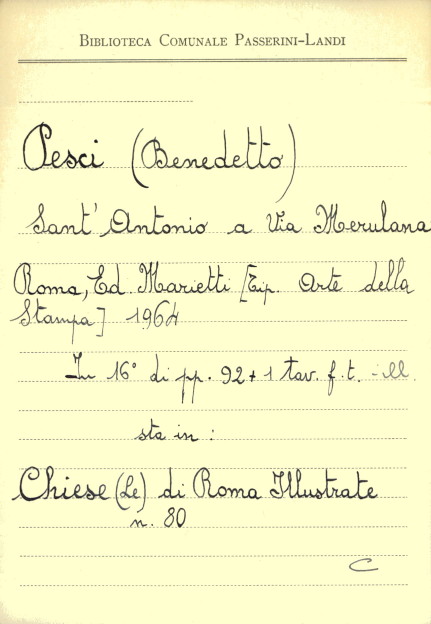 Biblioteca Comunale Passerini-Landi
Pesci (Benedetto)
Sant' Antonio a Via Merulana
Roma, Ed. Marietti [Tip. Arte della
Stampa] 1964
In 16° di pp. 92 + 1 tav. f. t. - ill.
sta in :
Chiese (Le) di Roma Illustrate
n. 80
C